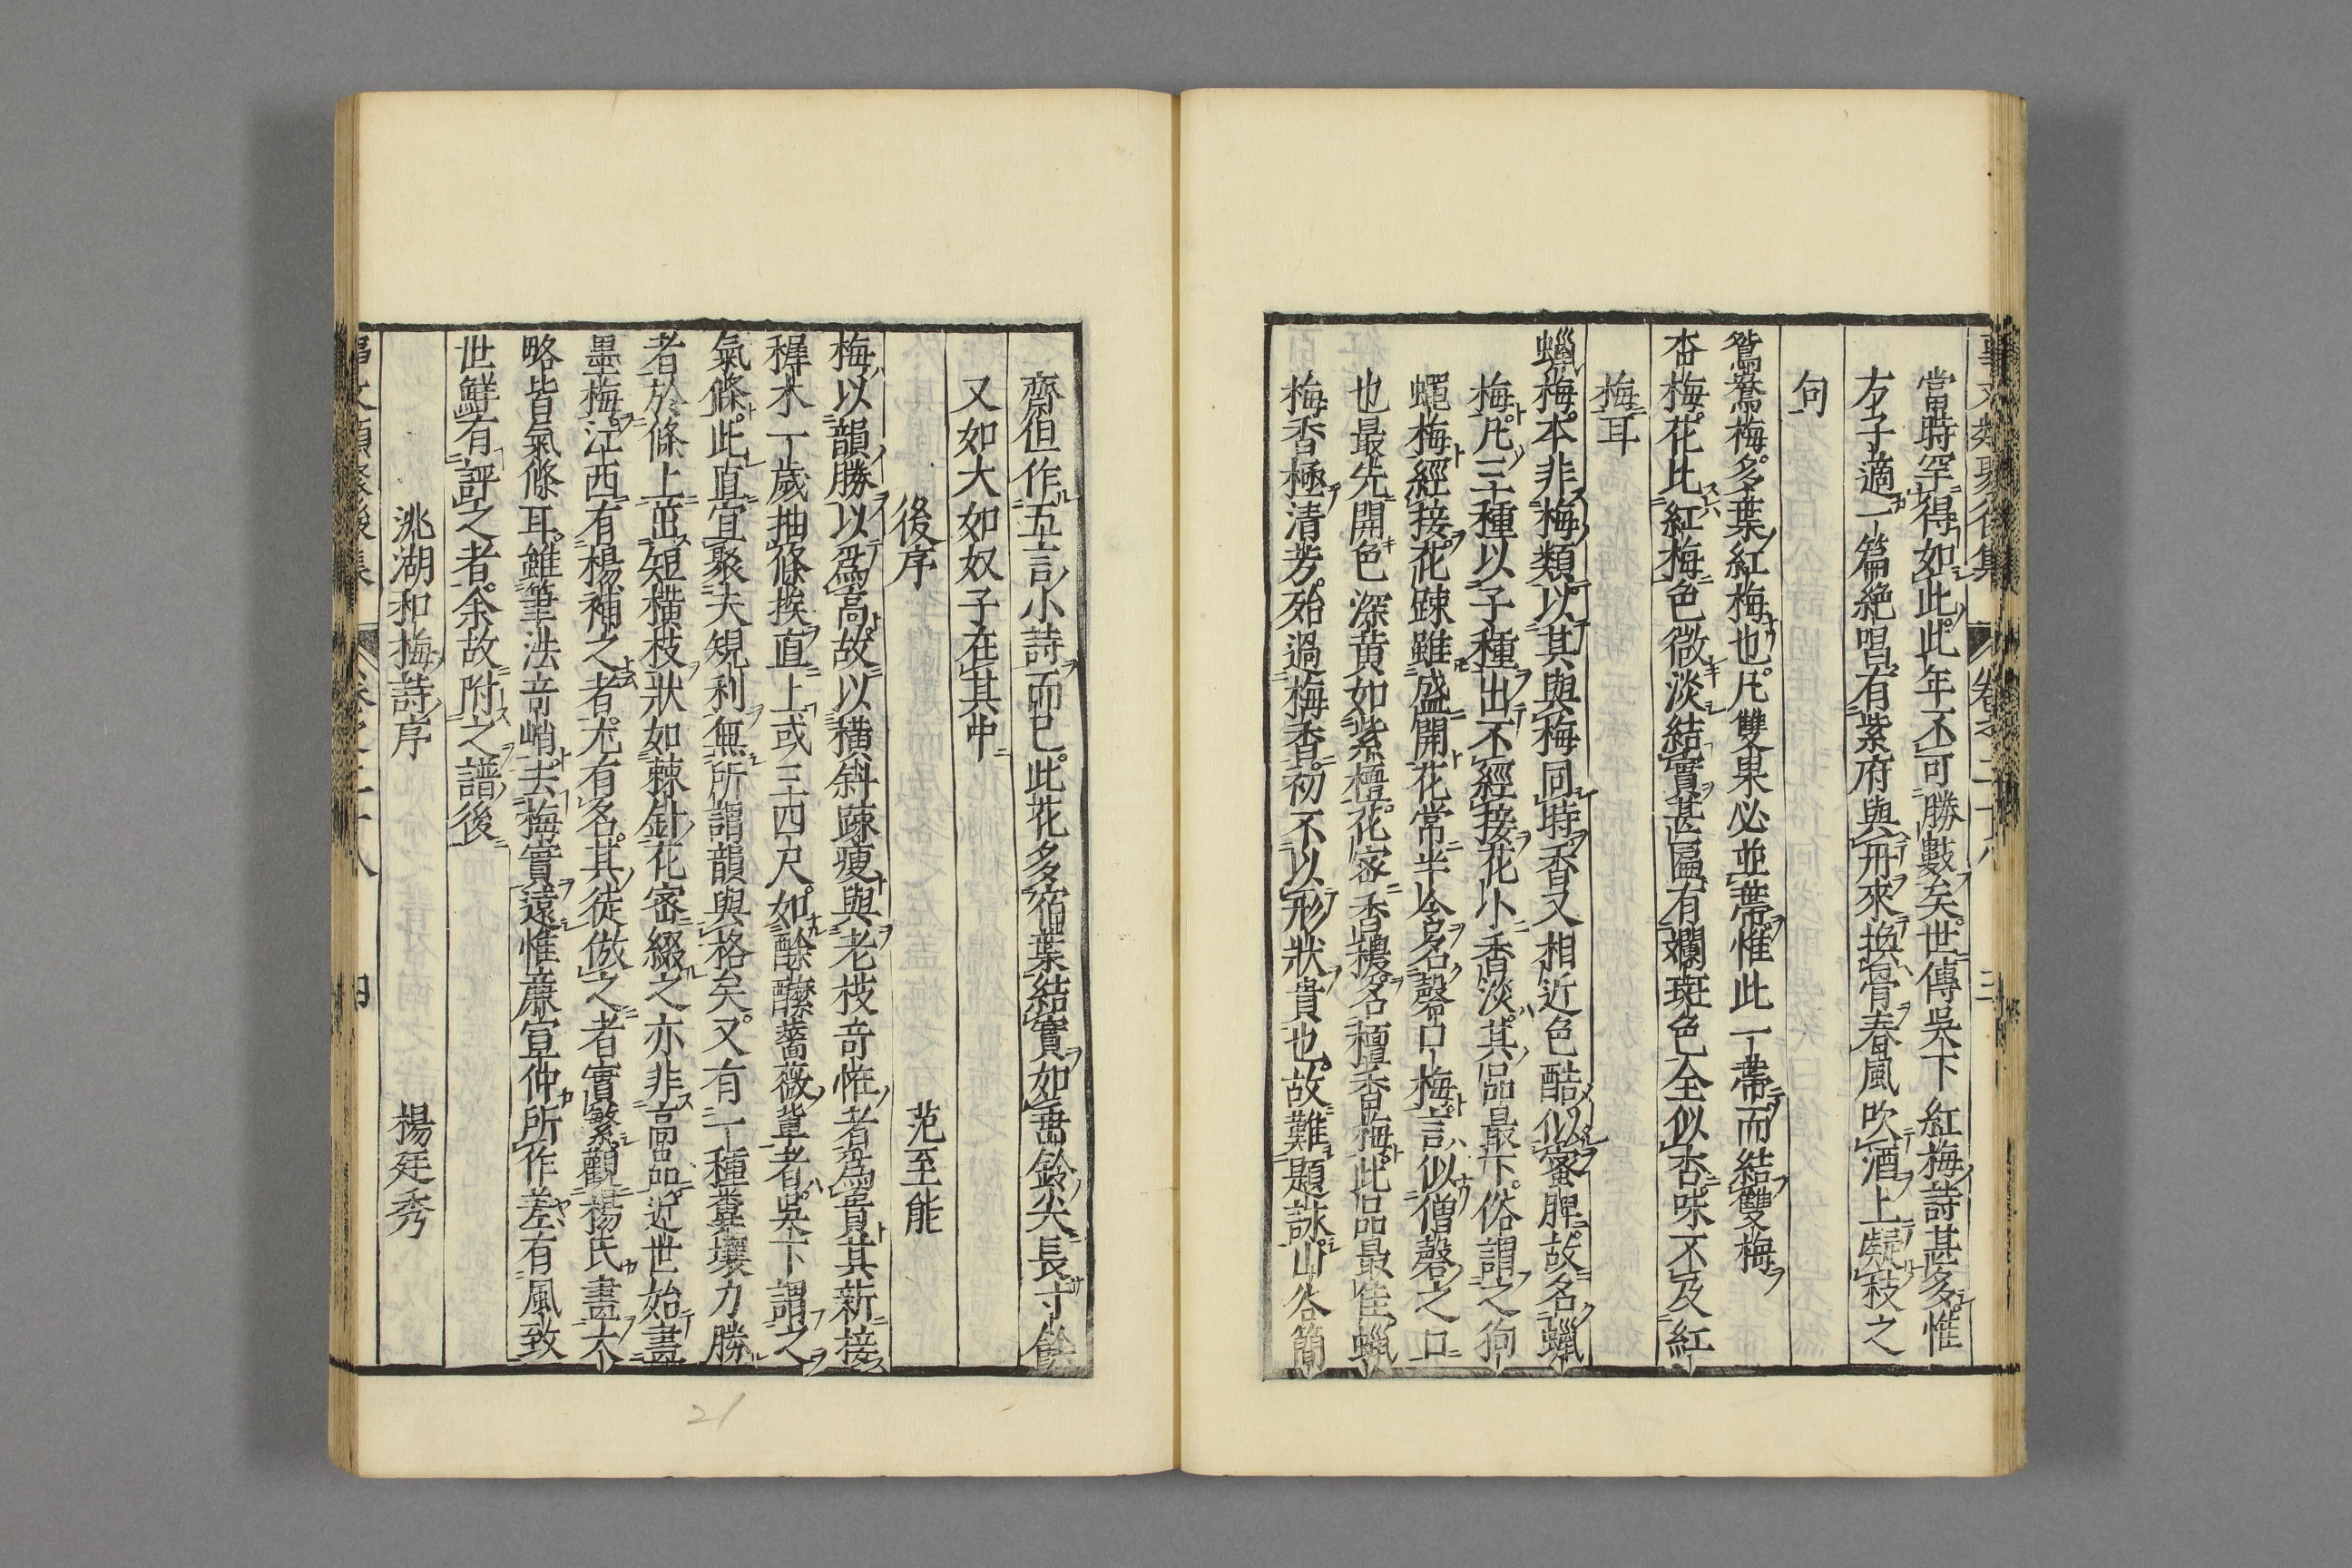 事文類聚後集 卷之二十八 三
當時罕得如此此年不可勝數矣世傳吳下紅梅詩甚多惟
方子適一篇絶唱有紫府與丹來換骨春風吹酒上凝枝之
句
鴛鴦梅多葉紅梅也凡雙果必並蒂惟此一蒂而結雙梅
杏梅花比紅梅色微淡結實甚匾有斕斑色全似杏味不及紅
梅耳
蠟梅本非梅類以其與梅同時香又相近色酷似蜜脾故名蠟
梅凡三種以子種出不經接花小香淡其品最下俗謂之狗
蠅梅經接花踈雖盛開花常半含名磬口梅言似僧磬之口
也最先開色深黄如紫檀花密香穠名檀香梅此品最佳蠟
梅香極清芳殆過梅香初不以形狀貴也故難題詠山谷簡
齋但作五言小詩而已此花多宿葉結實如垂鈴尖長寸餘
又如大如奴子在其中
後序 范至能
梅以韻勝以爲高故以橫斜踈瘦與老枝奇恠者爲貴其新接
穉木一歲抽條挨直上或三四尺如酴醿薔薇輩者吳下謂之
氣條此直宜聚夫規利無所謂韻與格矣又有一種糞壤力勝
者於條上茁短橫枝狀如棘針花密綴之亦非高品近世始畫
墨梅江西有楊補之者尤有名其徒倣之者實繁觀楊氏畫大
略皆氣條耳雖筆法奇峭去梅實遠惟廉宣仲所作差有風致
世鮮有評之者余故附之譜後
洮湖和梅詩序 楊廷秀
事文類聚後集 卷之二十八 四
21